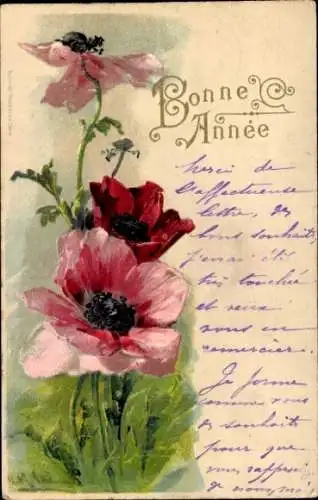 Bonne
Année
Merci de
l'affectueuse
lettre, des
bons souhaits,
j'en ai été
très touchée
et veux
vous en
remercier.
Je forme
comme vous
de souhaits
pour que
vous
de nous,